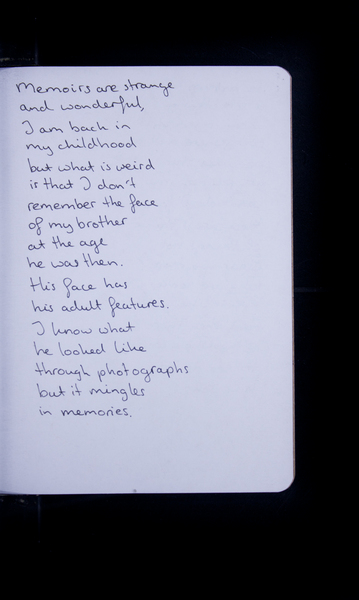 Memoirs are strange
and wonderful,
I am back in
my childhood
but what is weird
is that I don't
remember the face
of my brother
at the age
he was then.
His face has
his adult features.
I know what
he looked like
through photographs
but it mingles
in memories.